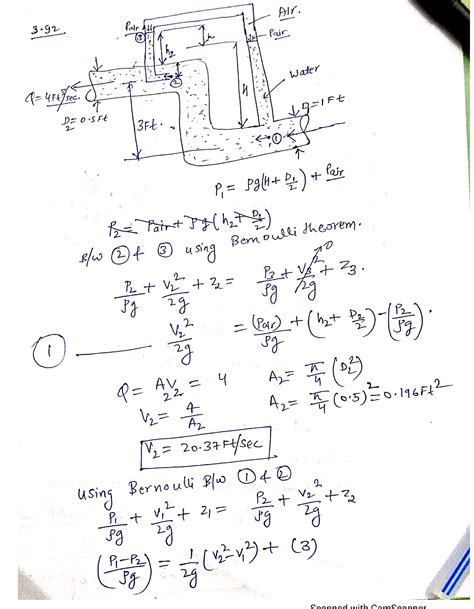 3.92
Air.
Pair
③
Pair
h₂
h
②
H
Water
Q = 4Ft³/sec
D₂ = 0.5Ft
3Ft.
D₁ = 1Ft
①
P₁ = ρg(H + D₁/2) + Pair
P₂ = Pair + ρg(h₂ + D₂/2)
B/W ② & ③ using Bernoulli theorem.
P₂/ρg + V₂²/2g + Z₂ = P₃/ρg + V₃²/2g + Z₃. 0
① V₂²/2g = (Pair)/ρg + (h₂ + D₂/2) - (P₂/ρg).
Q = A₂V₂ = 4 A₂ = π/4 (D₂²)
V₂ = 4/A₂ A₂ = π/4 (0.5)² = 0.196Ft²
V₂ = 20.37Ft/sec
using Bernoulli B/W ① & ②
P₁/ρg + V₁²/2g + Z₁ = P₂/ρg + V₂²/2g + Z₂
(P₁-P₂/ρg) = 1/2g (V₂² - V₁²) + (3)
Scanned with CamScanner